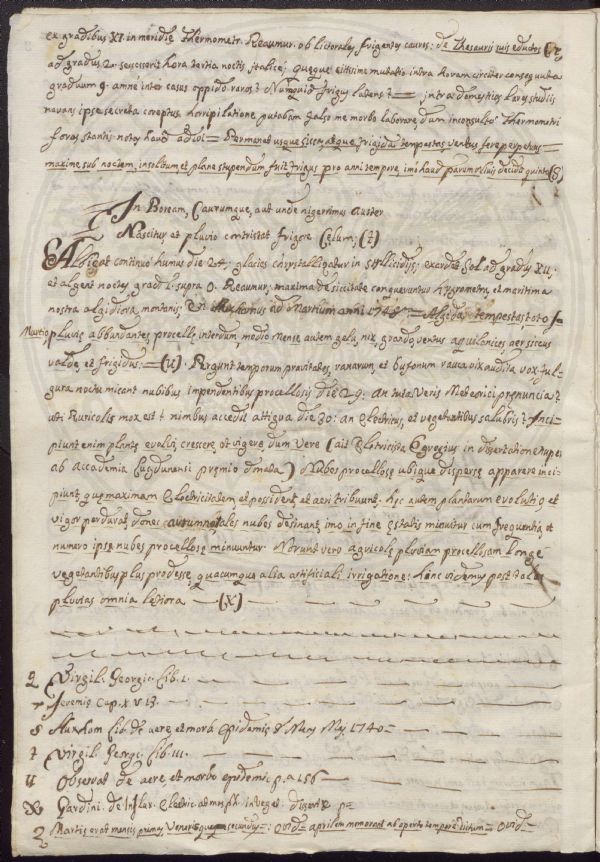 ex gradibus XI. in meridie Thermometr. Reaumur. ob littorales frigentes cauros: de Thesauris suis eductos (r)
ad gradus 2. sescesserit hora tertia noctis italice; queque citissime mutatio intra horam circiter consequuta
graduum 9. amne inter casus oppido raros? Numquid frigus latens? = intra domesticos lares studiis
navans ipse secreta coreptus horripilatione, putabam falso me morbo laborare, dum inconsultis Thermometri
foras stantis notes haud adivi = Permanet usque siccus, atque frigida tempestas ventus fere perpetuus =
maxime sub noctem, insolitum, et plane stupendum fuit frigus pro anni tempore, imo haud parum nivis decidit quinto (S)
In Boream, Caurumque, aut unde nigerrimus Auster
Nascitur, et pluvio contristat frigore Celum; (t)
Albicat continuo humus die 24: glacies chrystalligatur in stillicidiis; exardet Sol ad gradus XII:
et algent noctes, grad. 1. supra 0. Reaumur; maxima de siccitate conqueruntur hygrometra, et maritima
nostra algidiora montanis. Est Huxhamus ad Martium anni 1748 = Algida tempestas, toto
Martio, pluvie abbundantes, procelle interdum modio Mense autem gelu, nix, grando, ventus aquilonicus, aer siccus
valde, et frigidus: = (u). Pergunt temporum pravitates, ranarum, et bufonum rauca vix audita vox ful-
gura noctu micant nubibus impendentibus procellosis die 29. an tuta Veris Meteorici prenuncia?
uti Ruricolis mox est? nimbus accedit attigua die 30: an Electricus, et vegetantibus salubris? Inci-
piunt enim plante evolvi, crescere, et vigere dum Vere (ait Electricista Egregius in dissertatione nuper
ab Accademia Lugdunensi premio donata) Nubes procellose ubique disperse apparere inci-
piunt, que maximam Electricitatem et possident, et aeri tribuunt. hec autem plantarum evolutio, et
vigor perdurat, donec autumnales nubes desinant, imo in fine Estatis minuitur cum frequentia, et
numero ipse nubes procellose minuuntur. Norunt vero agricole pluviam procellosam longe
vegetantibus plus prodesse, quacumque alia artificiali irrigatione: hinc videmus post tales
pluvias omnia letiora — (X)
q Virgil. Georgic. Lib. 1.
r Jeremie Cap. X V. 13.
S Huxham Lib. de aere, et morb. Epidemis & Mens Maj. 1740
t Virgil. Georgc. Lib. III.
u Observat. de aere, et morbo epidemic. p. a 156
X Gardini. de Influx. Electric. atmosph. in Veget. dissert.
2 Martis erat mensis primus, Venerisque secundus: Ovid. aprilem memorant ab aperto tempore dictum = Ovid.